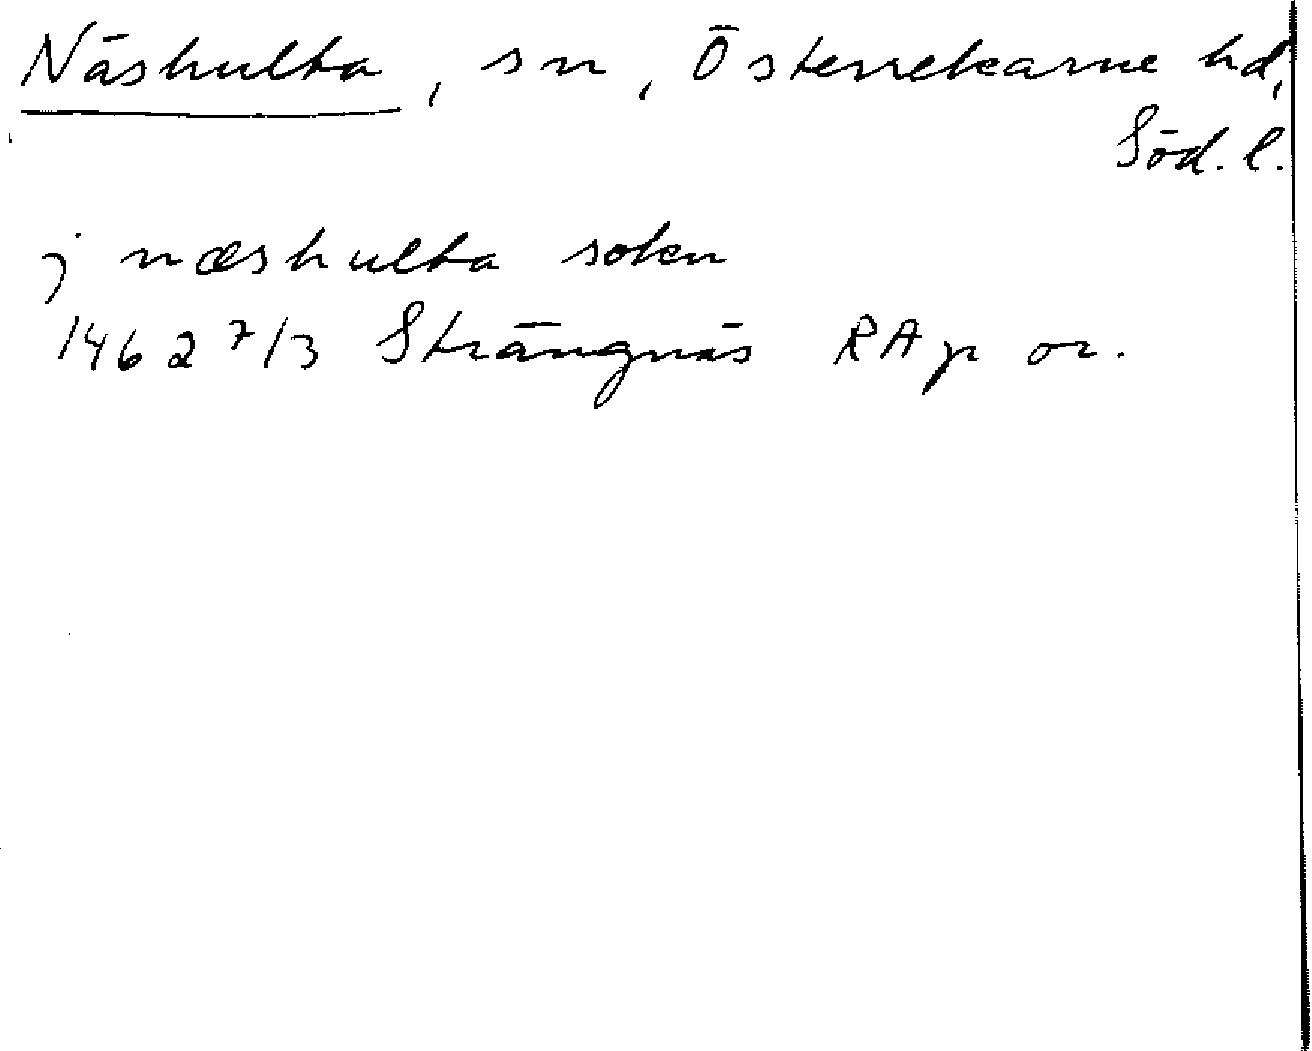 Näshulta, sn, Österrekarne hd,
Söd. l.
j næshulta sokn
1462 7/3 Strängnäs RAp or.